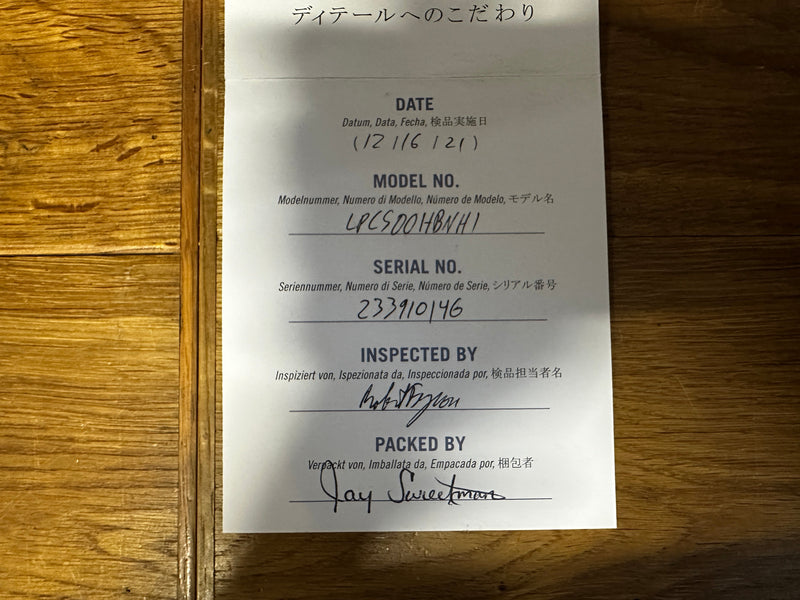 ディテールへのこだわり
DATE
Datum, Data, Fecha, 検品実施日
(12 116 121)
MODEL NO.
Modelnummer, Numero di Modello, Número de Modelo, モデル名
LPCS00HBNH1
SERIAL NO.
Seriennummer, Numero di Serie, Número de Serie, シリアル番号
233910146
INSPECTED BY
Inspiziert von, Ispezionata da, Inspeccionada por, 検品担当者名
PACKED BY
Verpackt von, Imballata da, Empacada por, 梱包者
Jay Sweetman